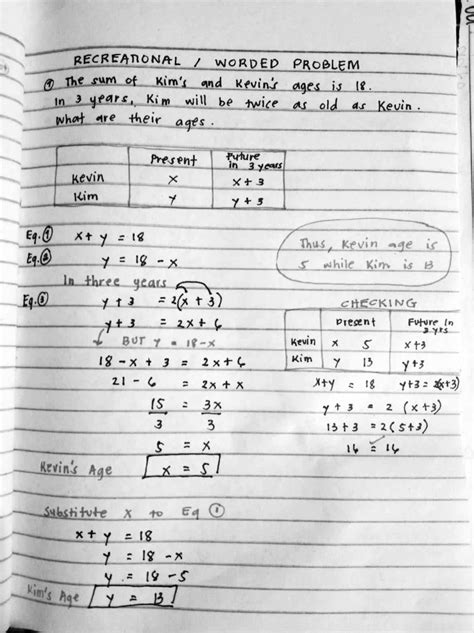 RECREATIONAL / WORDED PROBLEM
① The sum of Kim's and Kevin's ages is 18.
In 3 years, Kim will be twice as old as Kevin.
What are their ages.
Present Future in 3 years
Kevin x x+3
Kim y y+3
Eq.① x+y = 18
Eq.② y = 18-x
Thus, Kevin age is
5 while Kim is 13
In three years
Eq.③ y+3 = 2(x+3)
y+3 = 2x+6
BUT y = 18-x
18-x+3 = 2x+6
21-6 = 2x+x
15/3 = 3x/3
5 = x
Kevin's Age x = 5
CHECKING
Present Future in 3 yrs
Kevin x 5 x+3
Kim y 13 y+3
x+y = 18 y+3 = 2(x+3)
y+3 = 2(x+3)
13+3 = 2(5+3)
16 = 16
Substitute x to Eq ①
x+y = 18
y = 18-x
y = 18-5
Kim's Age y = 13